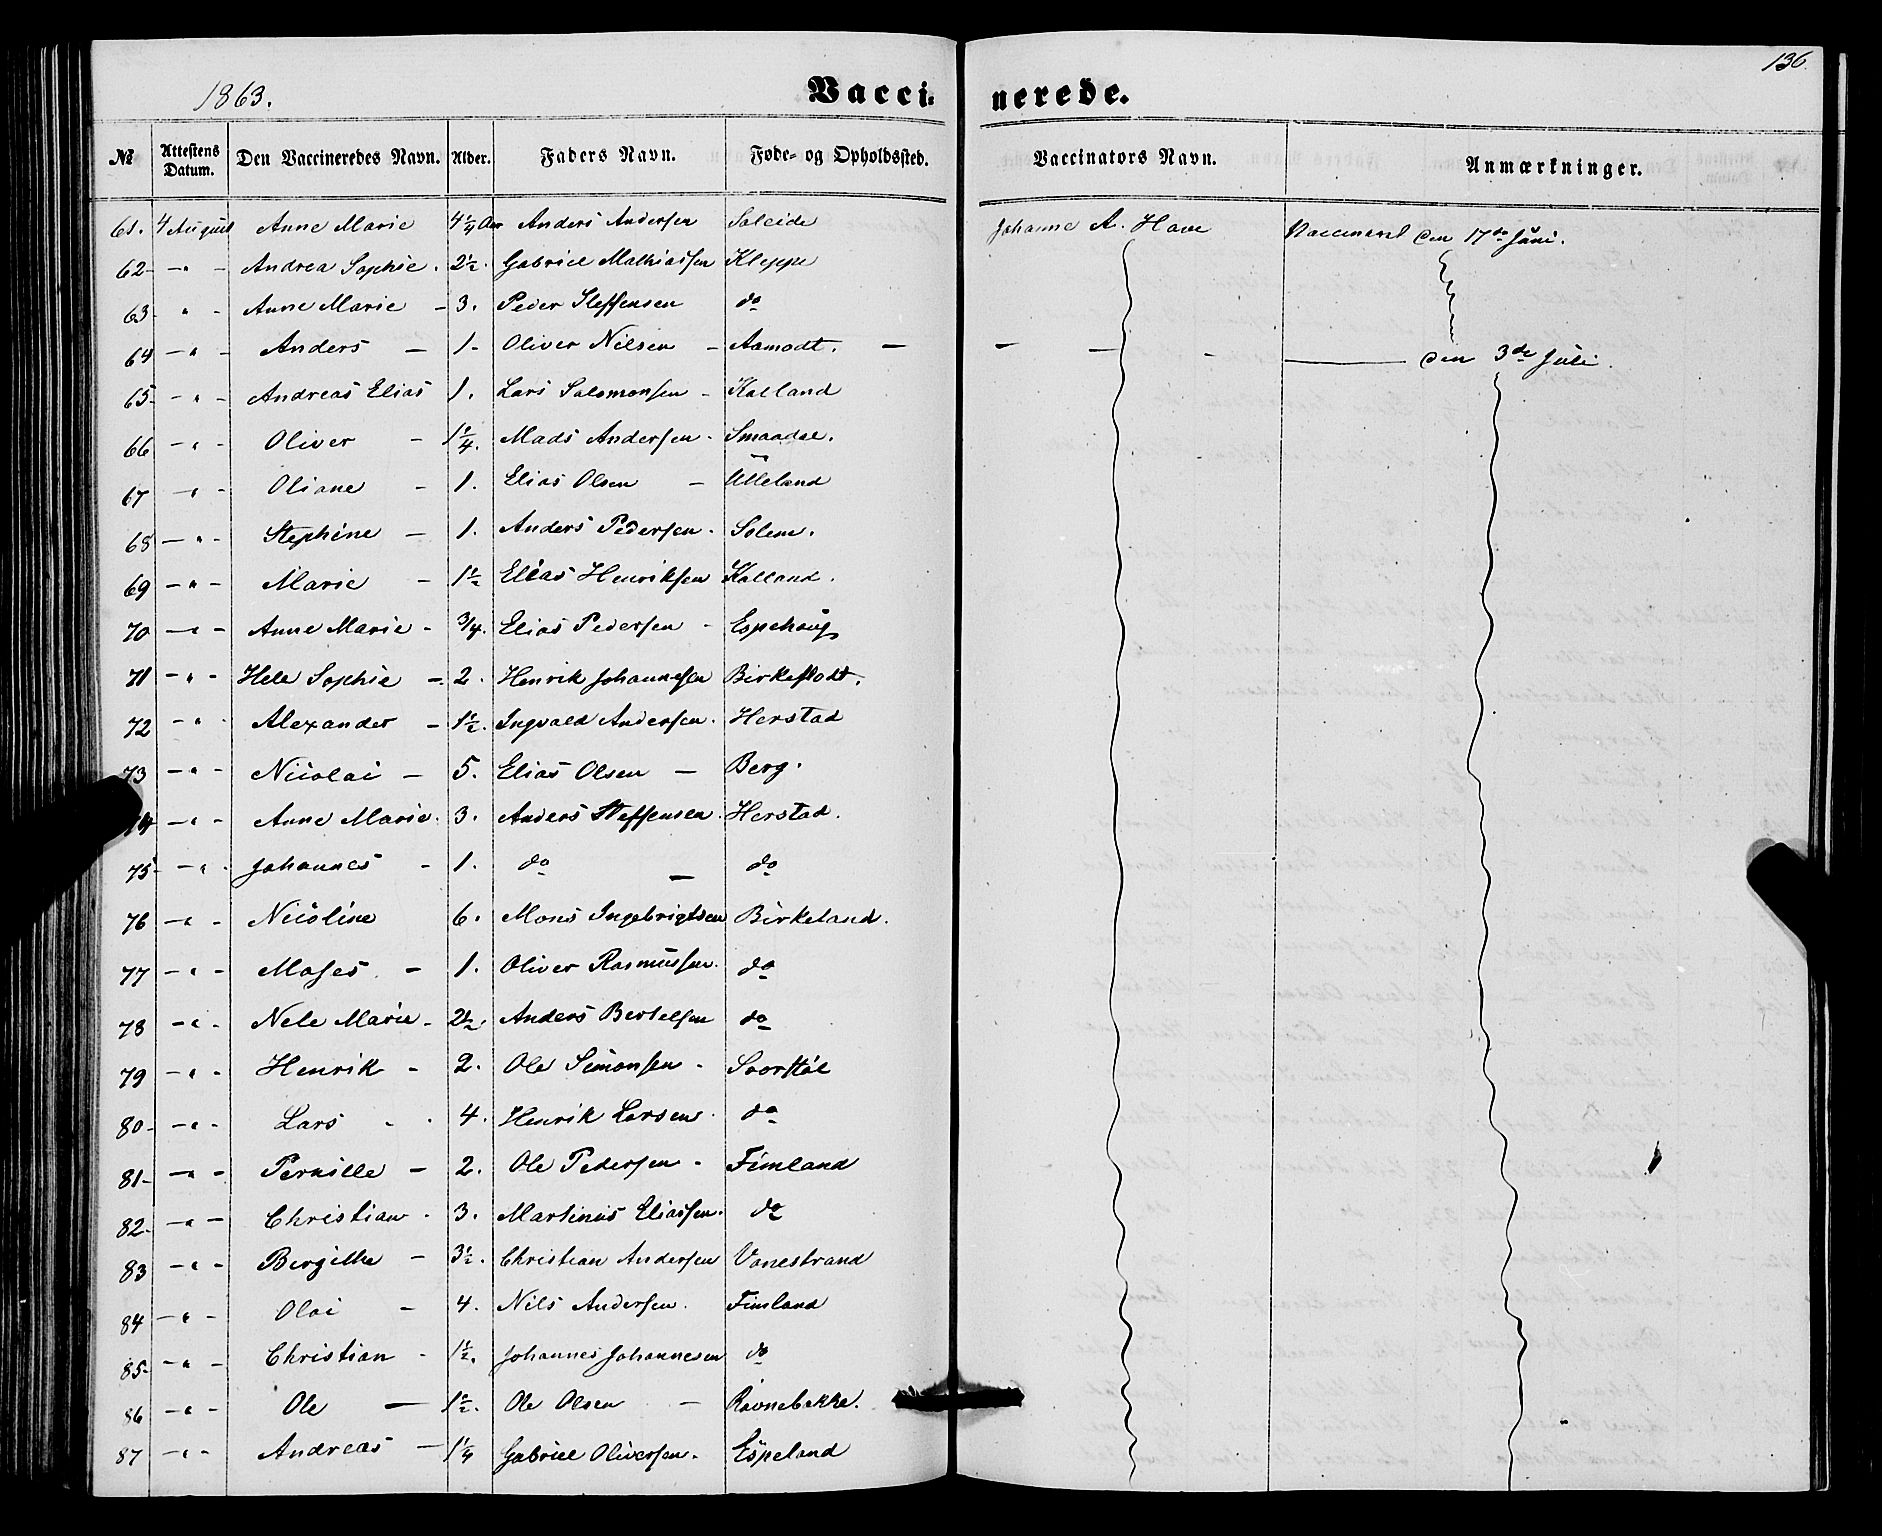 136
1863.
Vacci- nerede.
№ Attestens Datum. Den Vaccineredes Navn. Alder. Faders Navn. Føde- og Opholdssted. Vaccinators Navn. Anmærkninger.
61. 4 August Anne Marie 4¼ Aar Anders Andersen Soleide Johanne A. Have Vaccineret den 17de Juni.
62 - " - Andrea Sophie. 2½. Gabriel Mathiassen Kleppe
63 " - Anne Marie - 3. Peder Steffensen do
64 - " - Anders - 1 - Oliver Nilsen - Aamodt. - - - - den 3de Juli.
65 - " - Andreas Elias 1. Lars Salomonsen - Kalland
66 - " - Oliver - 1¼. Mads Andersen - Smaadal.
67 - " - Oliane - 1. Elias Olsen - Ulleland
68 - " - Stephine - 1. Anders Pedersen - Solem.
69 - " - Marie - 1½ Elias Henriksen Kalland.
70 - " - Anne Marie - ¾. Elias Pedersen - Espehaug
71 - " - Hele Sophie - 2. Henrik Johannesen Birkestodt.
72 - " - Alexander - 1½. Ingvald Andersen. Herstad
73 - " - Nicolai - 5. Elias Olsen - Berg.
74 - " - Anne Marie. 3. Anders Steffensen. Herstad.
75 - " - Johannes - 1. do - do
76 - " - Nicoline 6. Mons Ingebrigtsen Birkeland.
77 - " - Moses. - 1. Oliver Rasmussen. do
78 - " - Nele Marie - 2½. Anders Bertelsen do
79 - " - Henrik - 2. Ole Simonsen - Svorstøl
80 - " - Lars - 4. Henrik Larsen. do
81 - " - Pernille - 2. Ole Pedersen - Fimland
82. - " - Christian - 3. Martinus Eliassen. do
83 - " - Birgithe - 3½. Christian Andersen Vanestrand
84 - " - Olai - 4. Nils Andersen. Fimland
85 - " - Christian - 1½. Johannes Johannesen do
86 - " - Ole - 1½. Ole Olsen - Ravnebakke.
87 - " - Andreas - 1¼ Gabriel Oliversen. Espeland